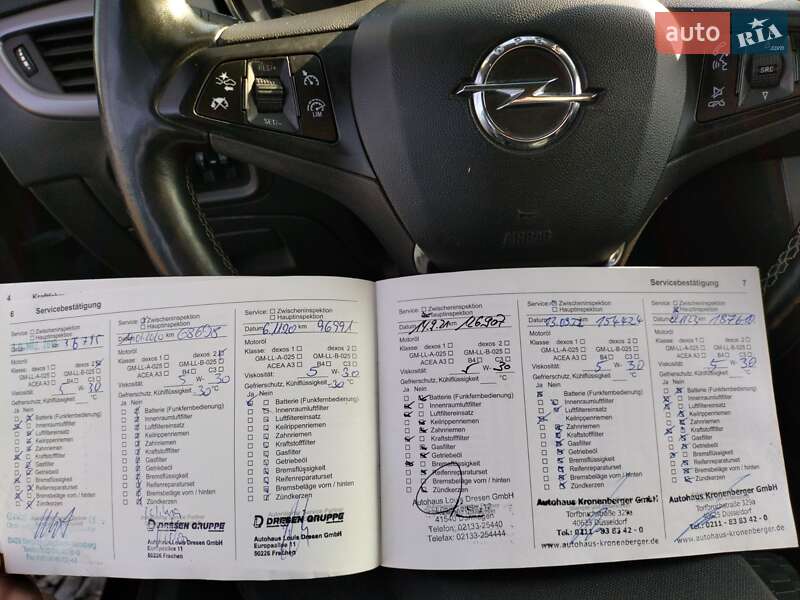 auto RIA .com
RES/+
SET/-
LIM
SRC
AIRBAG
4
6
Servicebestätigung
Service: Zwischeninspektion
Hauptinspektion
Motoröl
Klasse: dexos 1 dexos 2
GM-LL-A-025 GM-LL-B-025
ACEA A3 B4 C3
Viskosität: 5 W- 30
Gefrierschutz, Kühlflüssigkeit °C
Ja Nein
Batterie (Funkfernbedienung)
Innenraumluftfilter
Luftfiltereinsatz
Keilrippenriemen
Zahnriemen
Kraftstofffilter
Gasfilter
Getriebeöl
Bremsflüssigkeit
Reifenreparaturset
Bremsbeläge vorn / hinten
Zündkerzen
Service: Zwischeninspektion
Hauptinspektion
km 68698
Motoröl
Klasse: dexos 1 dexos 2
GM-LL-A-025 GM-LL-B-025
ACEA A3 B4 C3
Viskosität: 5 W- 30
Gefrierschutz, Kühlflüssigkeit -30 °C
Ja Nein
Batterie (Funkfernbedienung)
Innenraumluftfilter
Luftfiltereinsatz
Keilrippenriemen
Zahnriemen
Kraftstofffilter
Gasfilter
Getriebeöl
Bremsflüssigkeit
Reifenreparaturset
Bremsbeläge vorn / hinten
Zündkerzen
DRESEN GRUPPE
Autohaus Louis Dresen GmbH
Europaallee 11
50226 Frechen
Service: Zwischeninspektion
Hauptinspektion
Datum 6.11.20 km 96991
Motoröl
Klasse: dexos 1 dexos 2
GM-LL-A-025 GM-LL-B-025
ACEA A3 B4 C3
Viskosität: 5 W- 30
Gefrierschutz, Kühlflüssigkeit -30 °C
Ja Nein
Batterie (Funkfernbedienung)
Innenraumluftfilter
Luftfiltereinsatz
Keilrippenriemen
Zahnriemen
Kraftstofffilter
Gasfilter
Getriebeöl
Bremsflüssigkeit
Reifenreparaturset
Bremsbeläge vorn / hinten
Zündkerzen
DRESEN GRUPPE
Autohaus Louis Dresen GmbH
Europaallee 11
50226 Frechen
Servicebestätigung 7
Service: Zwischeninspektion
Hauptinspektion
Datum 11.9.21 km 126907
Motoröl
Klasse: dexos 1 dexos 2
GM-LL-A-025 GM-LL-B-025
ACEA A3 B4 C3
Viskosität: 5 W- 30
Gefrierschutz, Kühlflüssigkeit °C
Ja Nein
Batterie (Funkfernbedienung)
Innenraumluftfilter
Luftfiltereinsatz
Keilrippenriemen
Zahnriemen
Kraftstofffilter
Gasfilter
Getriebeöl
Bremsflüssigkeit
Reifenreparaturset
Bremsbeläge vorn / hinten
Zündkerzen
Autohaus Louis Dresen GmbH
Telefon: 02133-25440
Telefax: 02133-254444
Service: Zwischeninspektion
Hauptinspektion
km 154424
Motoröl
Klasse: dexos 1 dexos 2
GM-LL-A-025 GM-LL-B-025
ACEA A3 B4 C3
Viskosität: 5 W- 30
Gefrierschutz, Kühlflüssigkeit °C
Ja Nein
Batterie (Funkfernbedienung)
Innenraumluftfilter
Luftfiltereinsatz
Keilrippenriemen
Zahnriemen
Kraftstofffilter
Gasfilter
Getriebeöl
Bremsflüssigkeit
Reifenreparaturset
Bremsbeläge vorn / hinten
Zündkerzen
Autohaus Kronenberger GmbH
Torfbruchstraße 329a
40625 Düsseldorf
Tel.: 0211 - 83 83 42 - 0
www.autohaus-kronenberger.de
Service: Zwischeninspektion
Hauptinspektion
km 187610
Motoröl
Klasse: dexos 1 dexos 2
GM-LL-A-025 GM-LL-B-025
ACEA A3 B4 C3
Viskosität: 5 W- 30
Gefrierschutz, Kühlflüssigkeit °C
Ja Nein
Batterie (Funkfernbedienung)
Innenraumluftfilter
Luftfiltereinsatz
Keilrippenriemen
Zahnriemen
Kraftstofffilter
Gasfilter
Getriebeöl
Bremsflüssigkeit
Reifenreparaturset
Bremsbeläge vorn / hinten
Zündkerzen
Autohaus Kronenberger GmbH
Torfbruchstraße 329a
40625 Düsseldorf
Tel.: 0211 - 83 83 42 - 0
www.autohaus-kronenberger.de